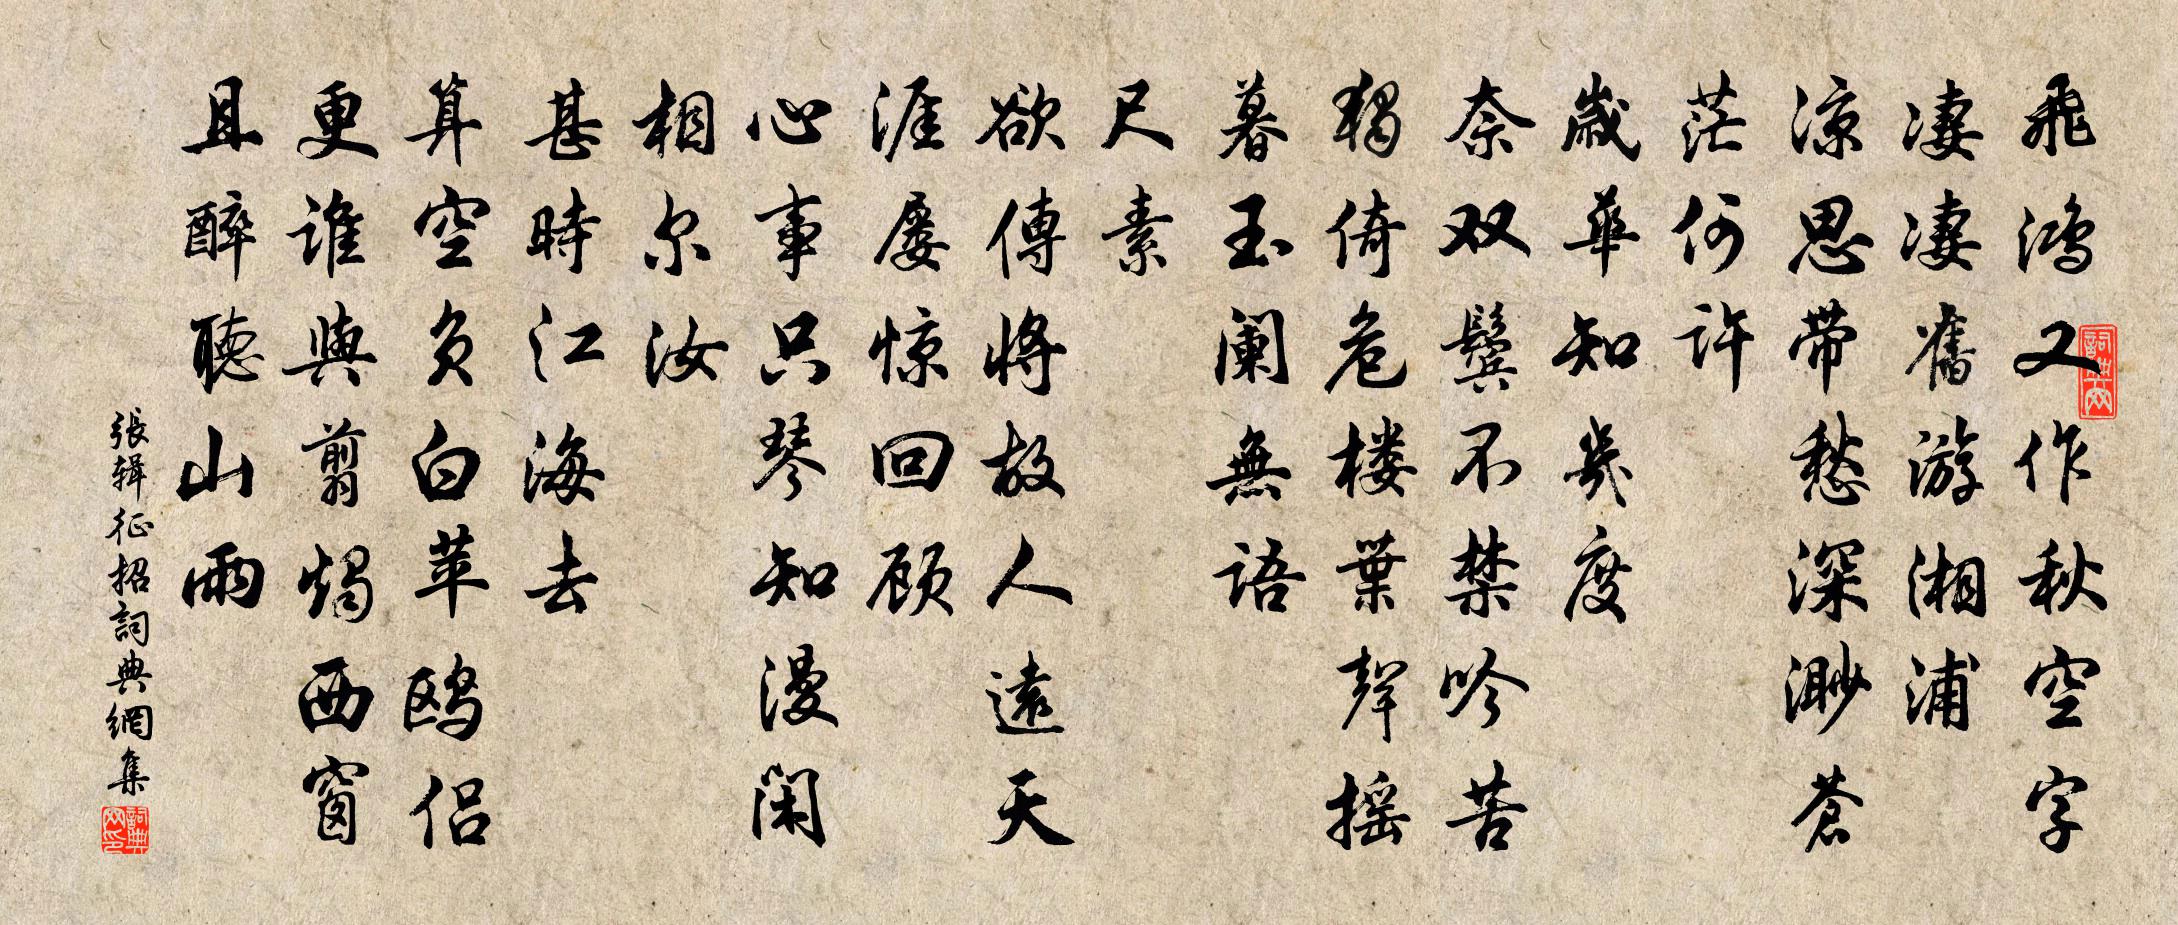 飛鴻又作秋空字
凄凄舊游湘浦
涼思帶愁深渺蒼
茫何許
歲華知幾度
奈双鬓不禁吟苦
獨倚危楼葉聲摇
暮玉阑無語
尺素
欲傳將故人遠天
涯屡惊回顾
心事只琴知漫閑
相尔汝
甚時江海去
算空负白苹鸥侣
更誰與剪燭西窗
且醉聽山雨
張辑征招詞典網集
詞典网
詞典网印